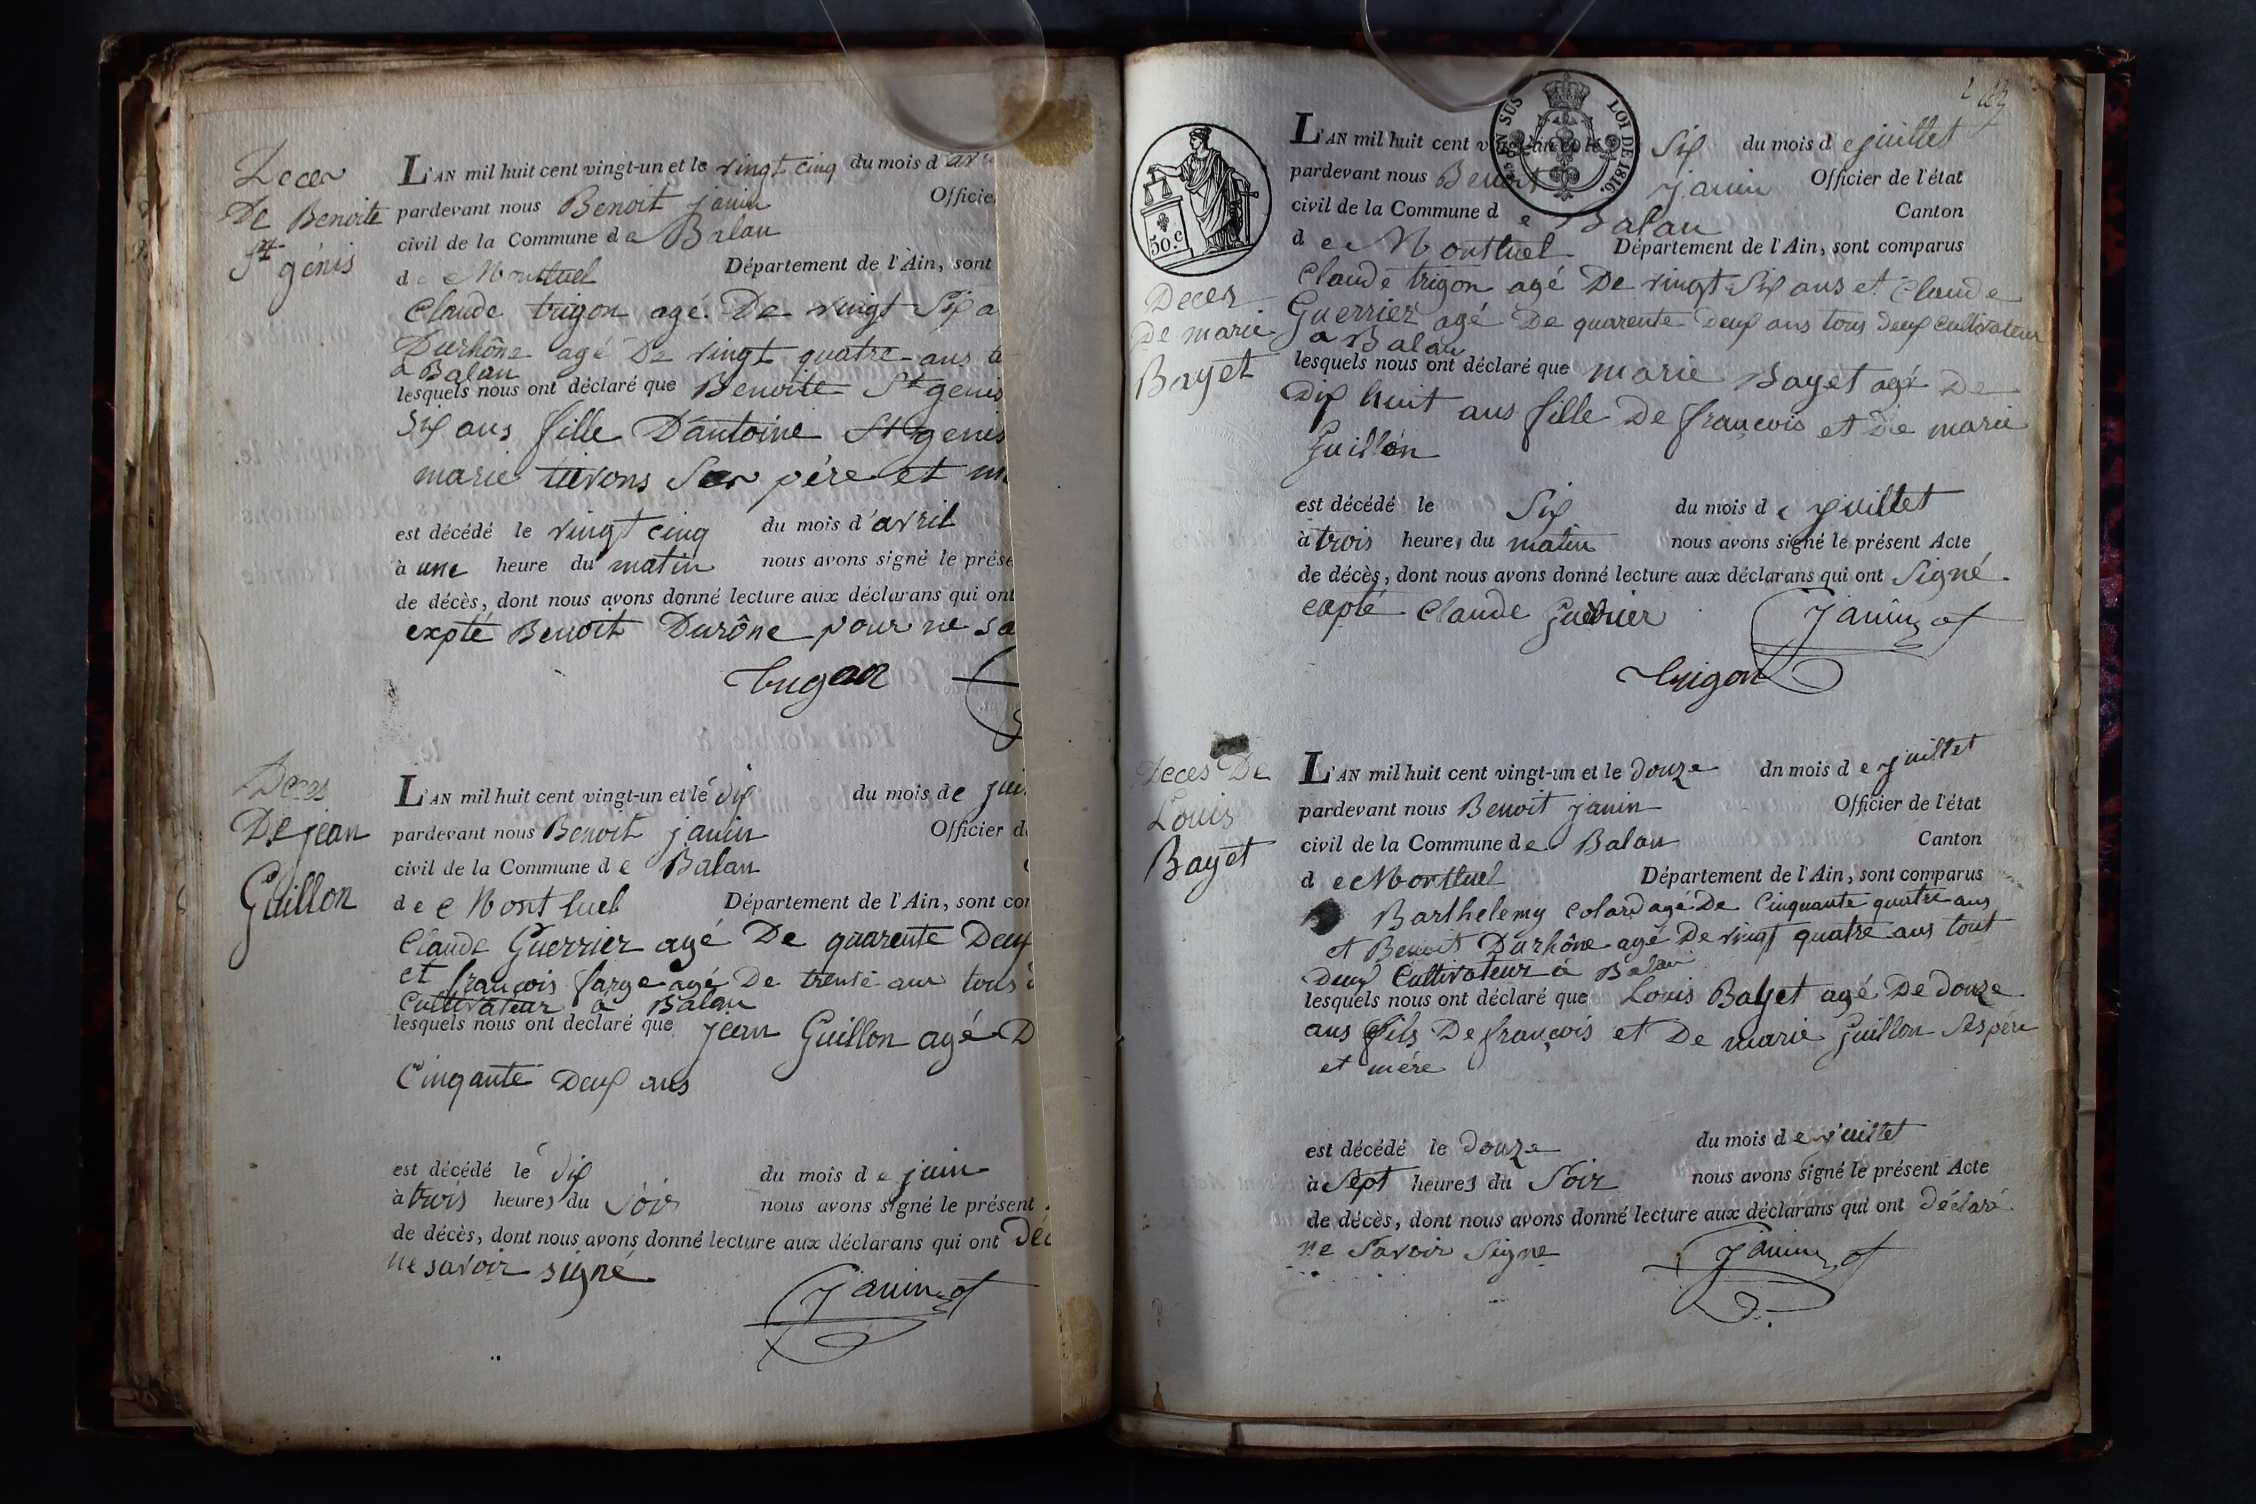 Deces
De Benoite
St génis
L'AN mil huit cent vingt-un et le vingt cinq du mois d'avri
pardevant nous Benoit janin Officie
civil de la Commune de Balan
de Montluel Département de l'Ain, sont
Claude trigon agé De vingt Six a
Durhône agé De vingt quatre ans t
a Balan
lesquels nous ont déclaré que Benoite St genis
Six ans fille D'antoine St genis
marie Ses père et m
est décédé le vingt cinq du mois d'avril
à une heure du matin nous avons signé le prése
de décès, dont nous avons donné lecture aux déclarans qui ont
expté Benoit Durône pour ne sa
trigon
Deces
De jean
Guillon
L'AN mil huit cent vingt-un et le dix du mois de jui
pardevant nous Benoit janin Officier d
civil de la Commune de Balan
de Montluel Département de l'Ain, sont co
Claude Guerrier agé De quarente Deux
et françois farge agé De trente ans tous
Cultivateur a Balan
lesquels nous ont déclaré que jean Guillon agé D
Cinqante Deux ans
est décédé le dix du mois de juin
à trois heures du Soir nous avons signé le présent
de décès, dont nous avons donné lecture aux déclarans qui ont Déc
ne savoir signé
Janin
EN SUS
LOI DE 1816.
50.c
Deces
De marie
Bayet
L'AN mil huit cent vingt-un et le Six du mois de juillet
pardevant nous Benoit janin Officier de l'état
civil de la Commune de Balan Canton
de Montluel Département de l'Ain, sont comparus
Claude trigon agé De vingt Six ans et Claude
Guerrier agé De quarente Deux ans tous Deux Cultivateur
a Balan
lesquels nous ont déclaré que marie Bayet agé De
Dix huit ans fille De françois et De marie
Guillon
est décédé le Six du mois de juillet
à trois heures du matin nous avons signé le présent Acte
de décès, dont nous avons donné lecture aux déclarans qui ont Signé
expté Claude Guerrier Janin
trigon
Deces De
Louis
Bayet
L'AN mil huit cent vingt-un et le douze dn mois de juillet
pardevant nous Benoit janin Officier de l'état
civil de la Commune de Balan Canton
de Montluel Département de l'Ain, sont comparus
Barthelemy Colard agé De Cinquante quatre ans
et Benoit Durhône agé De vingt quatre ans tout
Deux Cultivateur a Balan
lesquels nous ont déclaré que Louis Bayet agé De douze
ans fils De françois et De marie Guillon Ses père
et mére
est décédé le douze du mois de juillet
à Sept heures du Soir nous avons signé le présent Acte
de décès, dont nous avons donné lecture aux déclarans qui ont déclaré
ne Savoir Signe
Janin